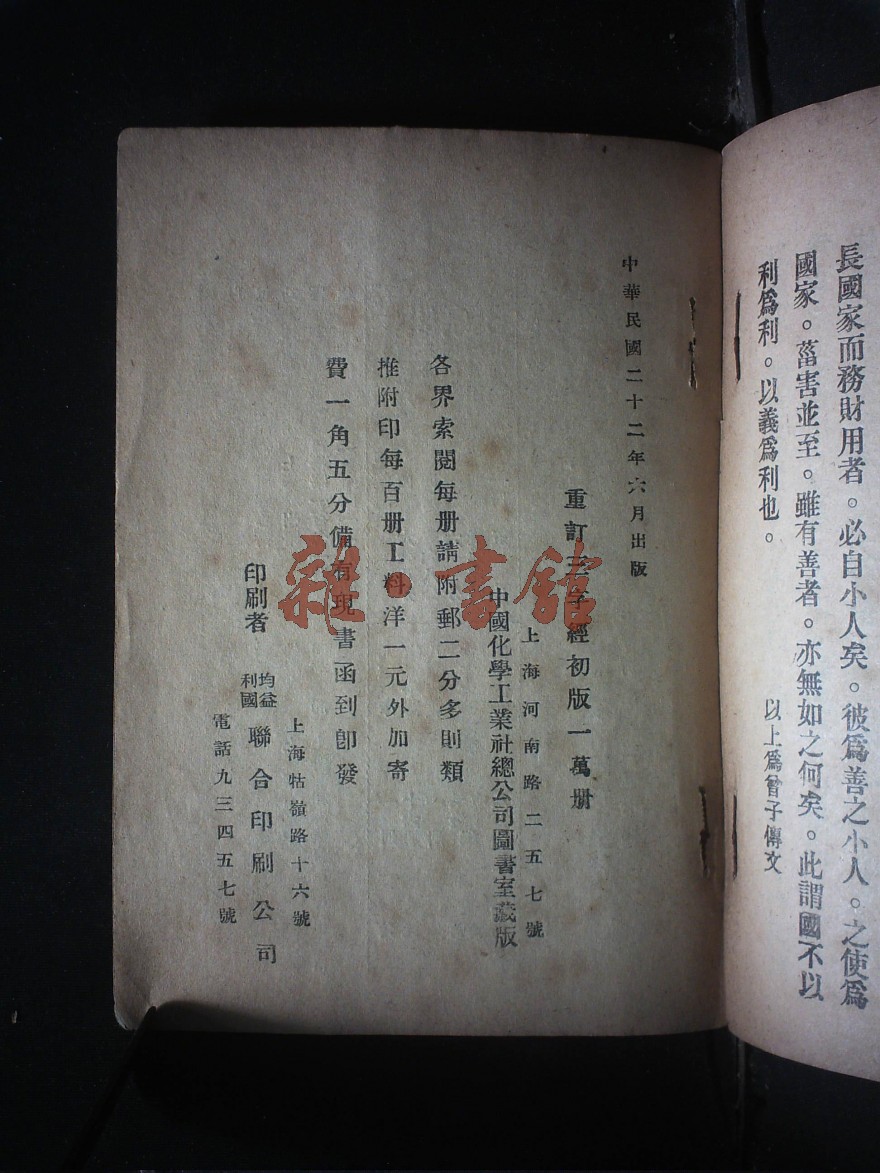 長國家而務財用者。必自小人矣。彼爲善之小人。之使爲
國家。菑害並至。雖有善者。亦無如之何矣。此謂國不以
利爲利。以義爲利也。
以上爲曾子傳文
中華民國二十二年六月出版
重訂三字經初版一萬册
上海河南路二五七號
中國化學工業社總公司圖書室藏版
各界索閱每册請附郵二分多則類
推附印每百册工料洋一元外加寄
費一角五分備有現書函到卽發
上海牯嶺路十六號
印刷者 均益利國聯合印刷公司
電話九三四五七號
雜·書館